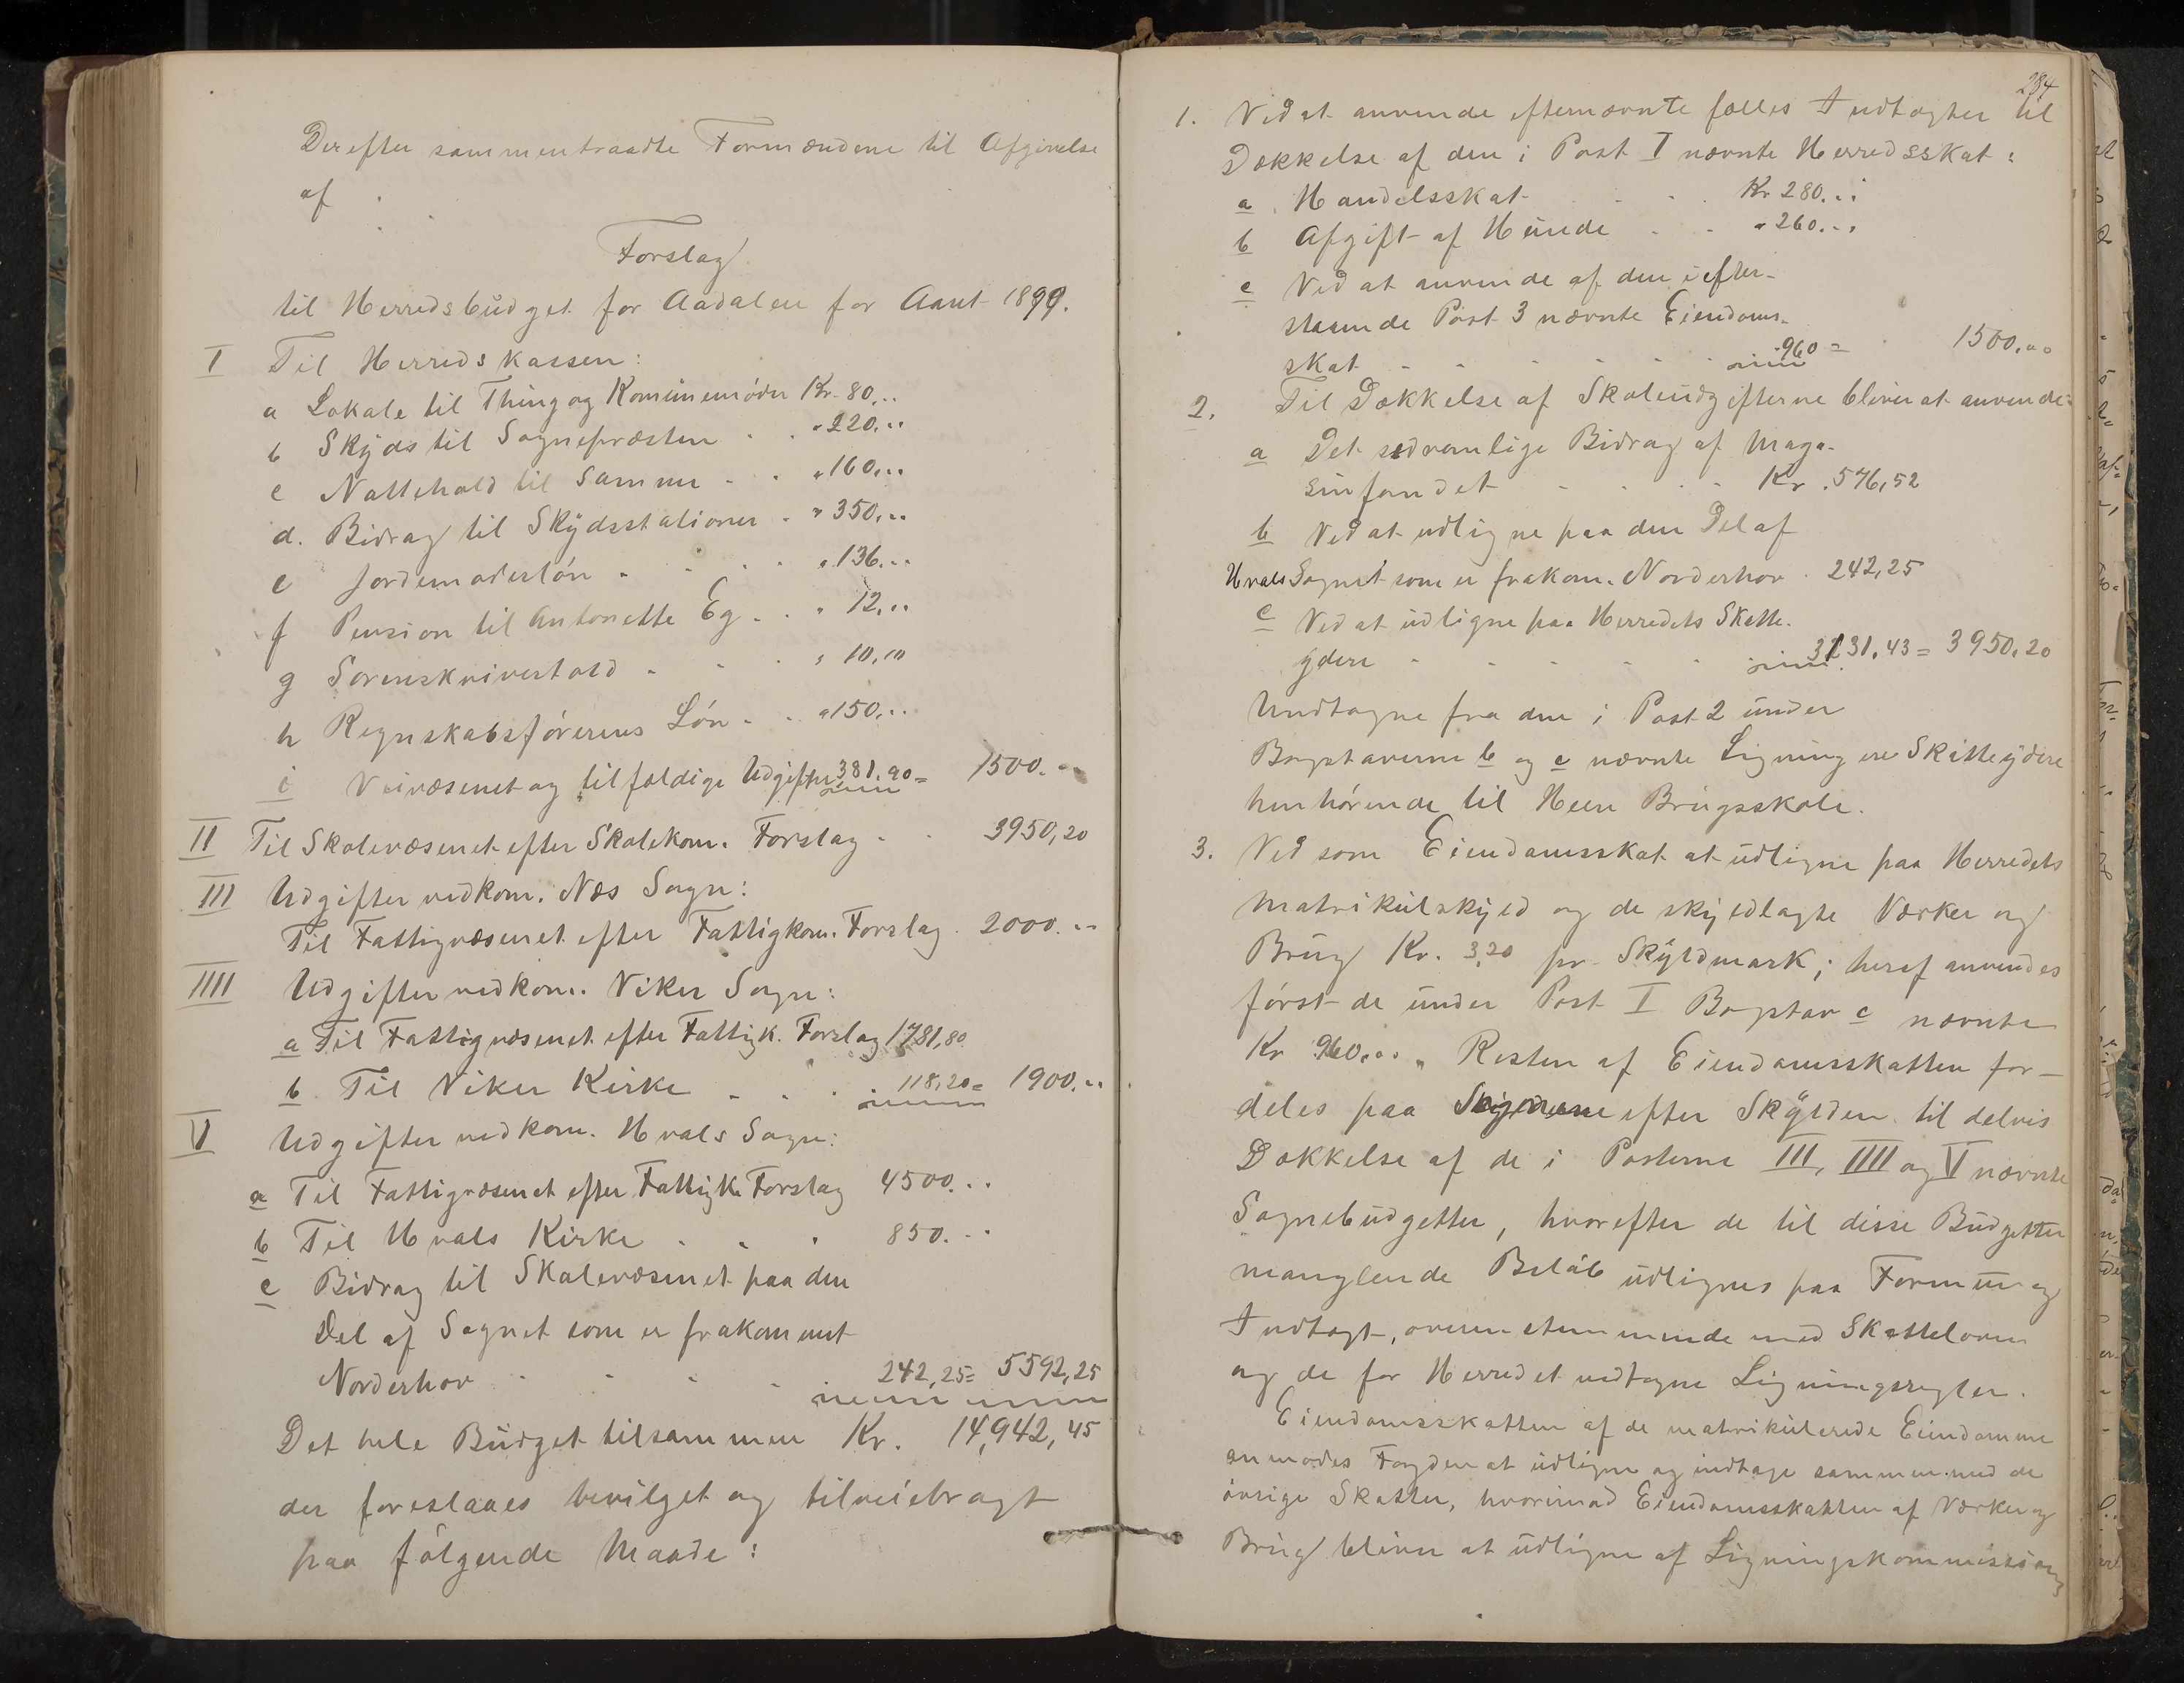 Derefter sammentraadte Formændene til Afgivelse
af
Forslag
til Herredsbudget for Aadalen for Aaret 1899.
I Til Herredskassen:
a Lokale til Thing og Komünemöder Kr. 80...
b Skyds til Sognepræsten . . " 220...
c Nattehold til Samme - . " 160...
d. Bidrag til Skydsstationer . " 350...
e Jordemoderlön . - . . " 136...
f Pension til Antonette Eg . . " 12...
g Sorenskrivertold . . . " 10,10
h Regnskabsförerens Lön . . " 150...
i Veivæsenet og tilfældige Udgifter 381.90 = 1500...
II Til Skolevæsenet efter Skolekom. Forslag . . 3950,20
III Udgifter vedkom. Næs Sogn:
Til Fattigvæsenet efter Fattigkom. Forslag . 2000...
IIII Udgifter vedkom. Viker Sogn:
a Til Fattigvæsenet efter Fattigk. Forslag 1781,80
b Til Viker Kirke . . . . 118,20 = 1900...
V Udgifter vedkom. Hvals Sogn:
a Til Fattigvæsenet efter Fattigk. Forslag 4500...
b Til Hvals Kirke . . . 850...
c Bidrag til Skolevæsenet paa den
Del af Sognet som er frakommet
Norderhov . . . . 242,25 = 5592,25
Det hele Büdget tilsammen Kr. 14,942,45
der foreslaaes bevilget og tilveiebragt
paa fölgende Maade:
284
1. Ved at anvende efternævnte fælles Indtægter til
Dækkelse af den i Post I nævnte Herredsskat:
a Handelsskat . . . Kr 280...
b Afgift af Hünde . . " 260...
c Ved at anvende af den i efter-
staaende Post 3 nævnte Eiendoms-
skat . . . . . 960 = 1500...
2. Til Dækkelse af Skoleüdgifterne bliver at anvende:
a Det sedvanlige Bidrag af Maga-
sinfondet . . . . Kr. 576,52
b Ved at udligne paa den Del af
Hvals Sognet som er frakom. Norderhov . 242,25
c Ved at üdligne paa Herredets Skatte-
ydere . . . . . 3131.43 = 3950,20
Undtagne fra den i Post 2 ünder
Bogstaverne b og c nævnte Ligning ere Skatteydere
henhörende til Heen Brugsskole.
3. Ved som Eiendomsskat at üdligne paa Herredets
Matrikülskyld og de skyldlagte Værker og
Brüg Kr. 3,20 pr. Skyldmark; heraf anvendes
först de ünder Post I Bogstav c nævnte
Kr 960... Resten af Eiendomsskatten for-
deles paa Sognene efter Skylden til delvis
Dækkelse af de i Posterne III, IIII og V nævnte
Sognebüdgetter, hvorefter de til disse Büdgetter
manglende Belöb üdlignes paa Formue og
Indtægt, overensstemmende med Skatteloven
og de for Herredet vedtagne Ligningsregler.
Eiendomsskatten af de matrikülerede Eiendomme
anmodes Fogden at üdligne og indtage sammen med de
övrige Skatter, hvorimod Eiendomsskatten af Værker og
Brüg bliver at üdligne af Ligningskommissionen